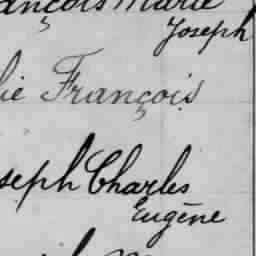 ançois Marie
Joseph
lie François
seph Charles
Eugène